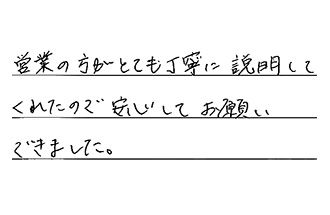 営業の方がとても丁寧に説明して
くれたので安心してお願い
できました。